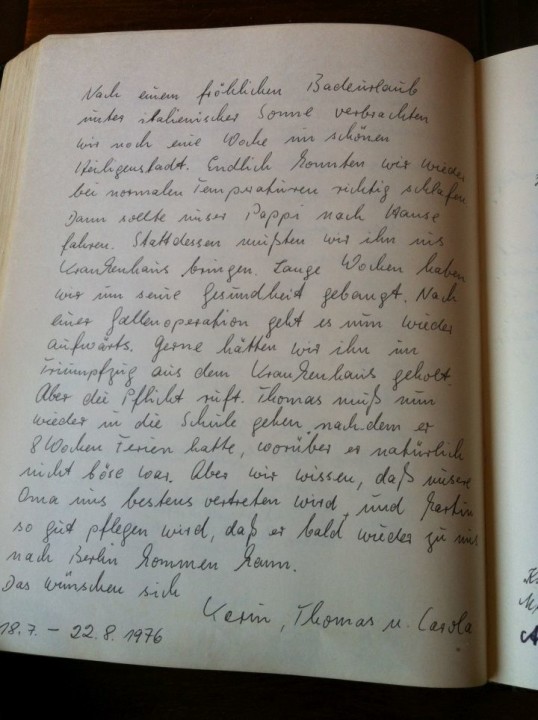 Nach einem fröhlichen Badeurlaub
unter italienischer Sonne verbrachten
wir noch eine Woche im schönen
Heiligenstadt. Endlich konnten wir wieder
bei normalen Temperaturen richtig schlafen
Dann sollte unser Pappi nach Hause
fahren. Stattdessen mußten wir ihn ins
Krankenhaus bringen. Lange Wochen haben
wir um seine Gesundheit gebangt. Nach
einer Gallenoperation geht es nun wieder
aufwärts. Gerne hätten wir ihn im
Triumpfzug aus dem Krankenhaus geholt.
Aber die Pflicht ruft. Thomas muß nun
wieder in die Schule gehen nach dem er
8 Wochen Ferien hatte, worüber er natürlich
nicht böse war. Aber wir wissen, daß unsere
Oma uns bestens vertreten wird, und Martin
so gut pflegen wird, daß er bald wieder zu uns
nach Berlin kommen kann.
Das wünschen sich
Karin, Thomas u. Carola
18.7. – 22.8. 1976